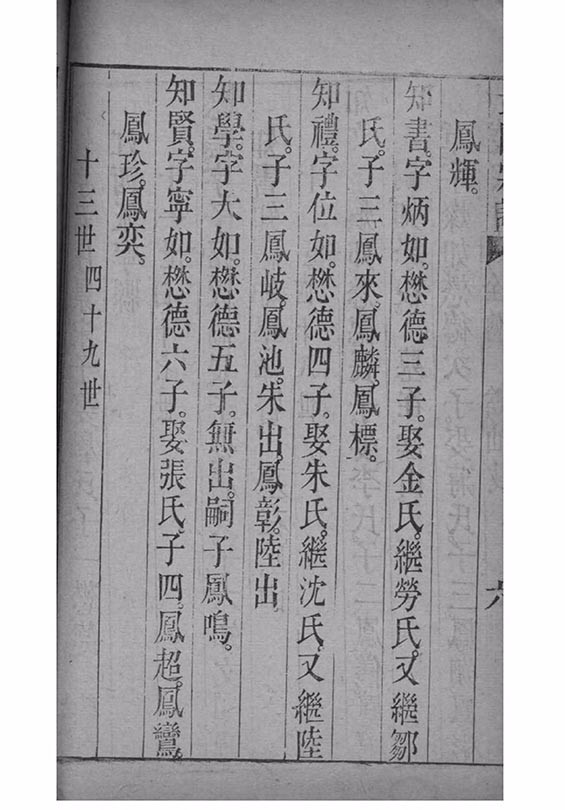 鳳輝。
知書。字炳如。懋德三子。娶金氏。繼勞氏。又繼鄒
氏。子三鳳來。鳳麟。鳳標。
知禮。字位如。懋德四子。娶朱氏。繼沈氏。又繼陸
氏。子三鳳岐。鳳池。朱出。鳳彰。陸出。
知學。字大如。懋德五子。無出。嗣子鳳鳴。
知賢。字寧如。懋德六子。娶張氏。子四。鳳超。鳳鸞。
鳳珍。鳳奕。
十三世四十九世